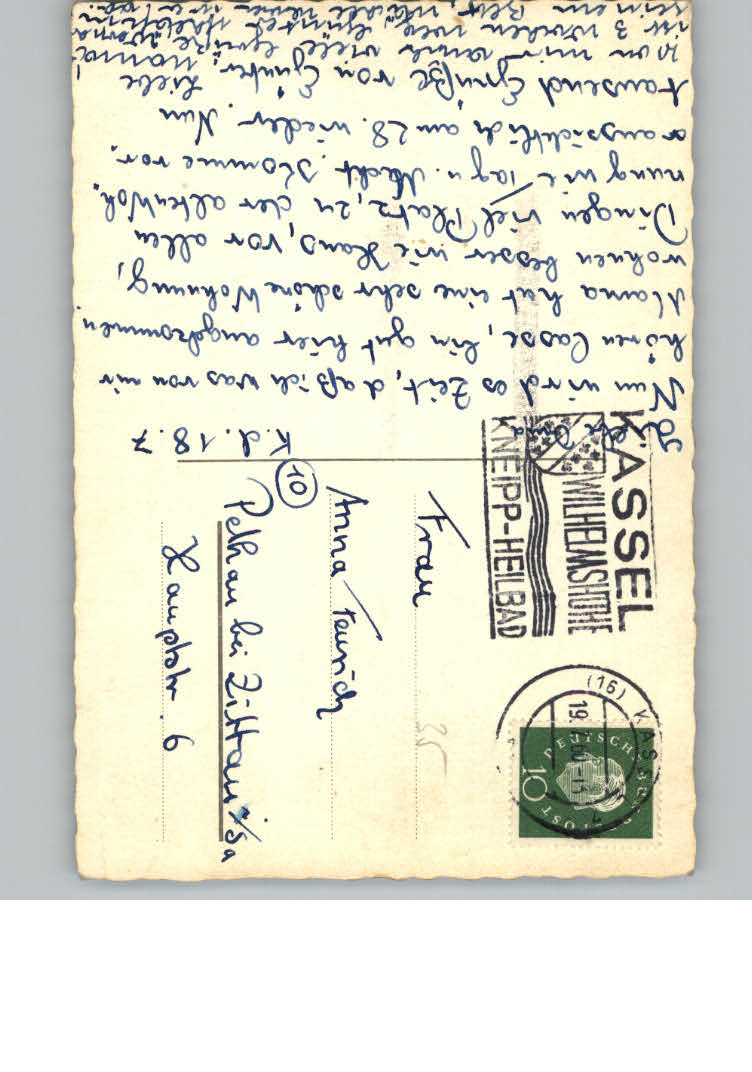 K. d. 18. 7
Liebe Oma
Nun wird es Zeit, daß ich was von mir
hören lasse, bin gut hier angekommen
Mama hat eine sehr schöne Wohnung,
wohnen besser wie Hans, vor allen
Dingen viel Platz, zu der alten Woh"
nung wie Tag u. Nacht. Komme vor"
aussichtlich am 28. wieder. Nun
tausend Grüße von Günter. Liebe
von mir auch viele Grüße
nur 3 Wochen
sein
KASSEL
WILHELMSHÖHE
KNEIPP-HEILBAD
(16) KASSEL
19.7.60
2
DEUTSCHE BUNDESPOST
10
Frau
Anna
10
bei Zittau i/Sa
Hauptstr. 6